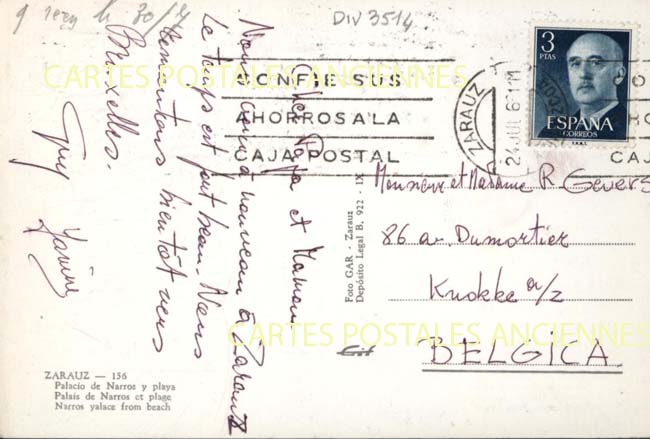 reçu le 30/7
DIV 3514
Cher Papa et Maman
Nous sommes à nouveau à Zarauz
Le temps est fort beau. Nous
remontons bientôt vers
Bruxelles.
Guy Janine
CONFIE SUS
AHORROS A LA
CAJA POSTAL
ZARAUZ
24 JUL 6
3
PTAS
ESPAÑA
CORREOS
Monsieur et Madame R Gevers
86 av. Dumortier
Knokke a/z
BELGICA
Foto GAR - Zarauz
Depósito Legal B. 922 - IX
ZARAUZ — 156
Palacio de Narros y playa
Palais de Narros et plage
Narros yalace from beach
CARTES POSTALES ANCIENNES
CARTES POSTALES ANCIENNES